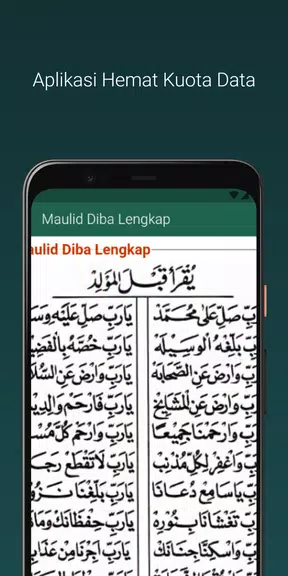 Aplikasi Hemat Kuota Data
Maulid Diba Lengkap
aulid Diba Lengkap
يُقْرَأُ قَبْلَ المَوْلِدِ
بِّ صَلِّ عَلىٰ مُحَمَّدْ يَارَبِّ صَلِّ عَلَيْهِ وَس
بِّ بَلِّغْهُ الْوَسِيلَهْ يَارَبِّ خُصَّهُ بِالْفَضِي
بِّ وَارْضَ عَنِ الصَّحَابَهْ يَارَبِّ وَارْضَ عَنِ السُّلَا
بِّ وَارْضَ عَنِ الْمَشَايِخْ يَارَبِّ فَارْحَمْ وَالِدِين
بِّ وَارْحَمْنَا جَمِيعًا يَارَبِّ وَارْحَمْ كُلَّ مُس
بِّ وَاغْفِرْ لِكُلِّ مُذْنِبْ يَارَبِّ لَا تَقْطَعْ رَجَا
بِّ يَاسَامِعْ دُعَانَا يَارَبِّ بَلِّغْنَا نَزُو
بِّ تَغْشَانَا بِنُورِهْ يَارَبِّ حِفْظَانَكْ وَامَا
بِّ وَاسْكِنَّا جِنَانَكْ يَارَبِّ اَجِرْنَا مِنْ عَذَابِ